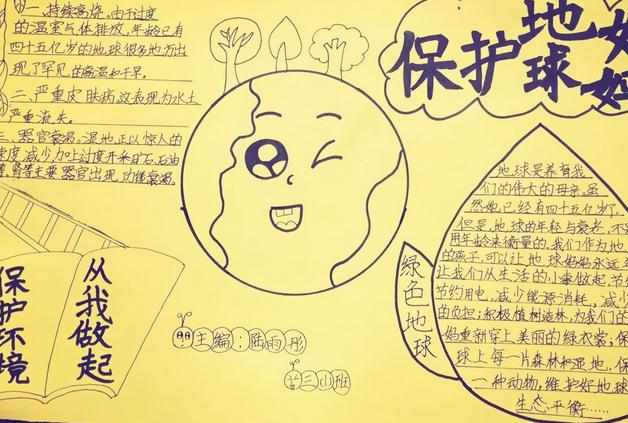 保护地球妈妈
一、持续高烧。由于过度
的温室气体排放,年龄已有
四十五亿岁的地球很多地方出
现了罕见的高温和干旱。
二、严重皮肤病这表现为水土
严重流失。
三、器官衰竭。湿地正以惊人的
速度减少,加上过度开采矿石,石油
等,肾等主要器官出现功能衰竭。
保护环境
从我做起
主编:陆雨彤
三(1)班
绿色地球
地球是养育我
们的伟大的母亲,虽
然她已经有四十五亿岁了,
但是,地球的年轻与衰老,不
用年龄来衡量的,我们作为地
的孩子,可以让地球妈妈永远
让我们从生活的小事做起,节
节约用电,减少能源消耗,减少
的负担;积极植树造林,为我们的
妈重新穿上美丽的绿衣裳;保
球上每一片森林和湿地,保
一种动物,维护好地球
生态平衡……